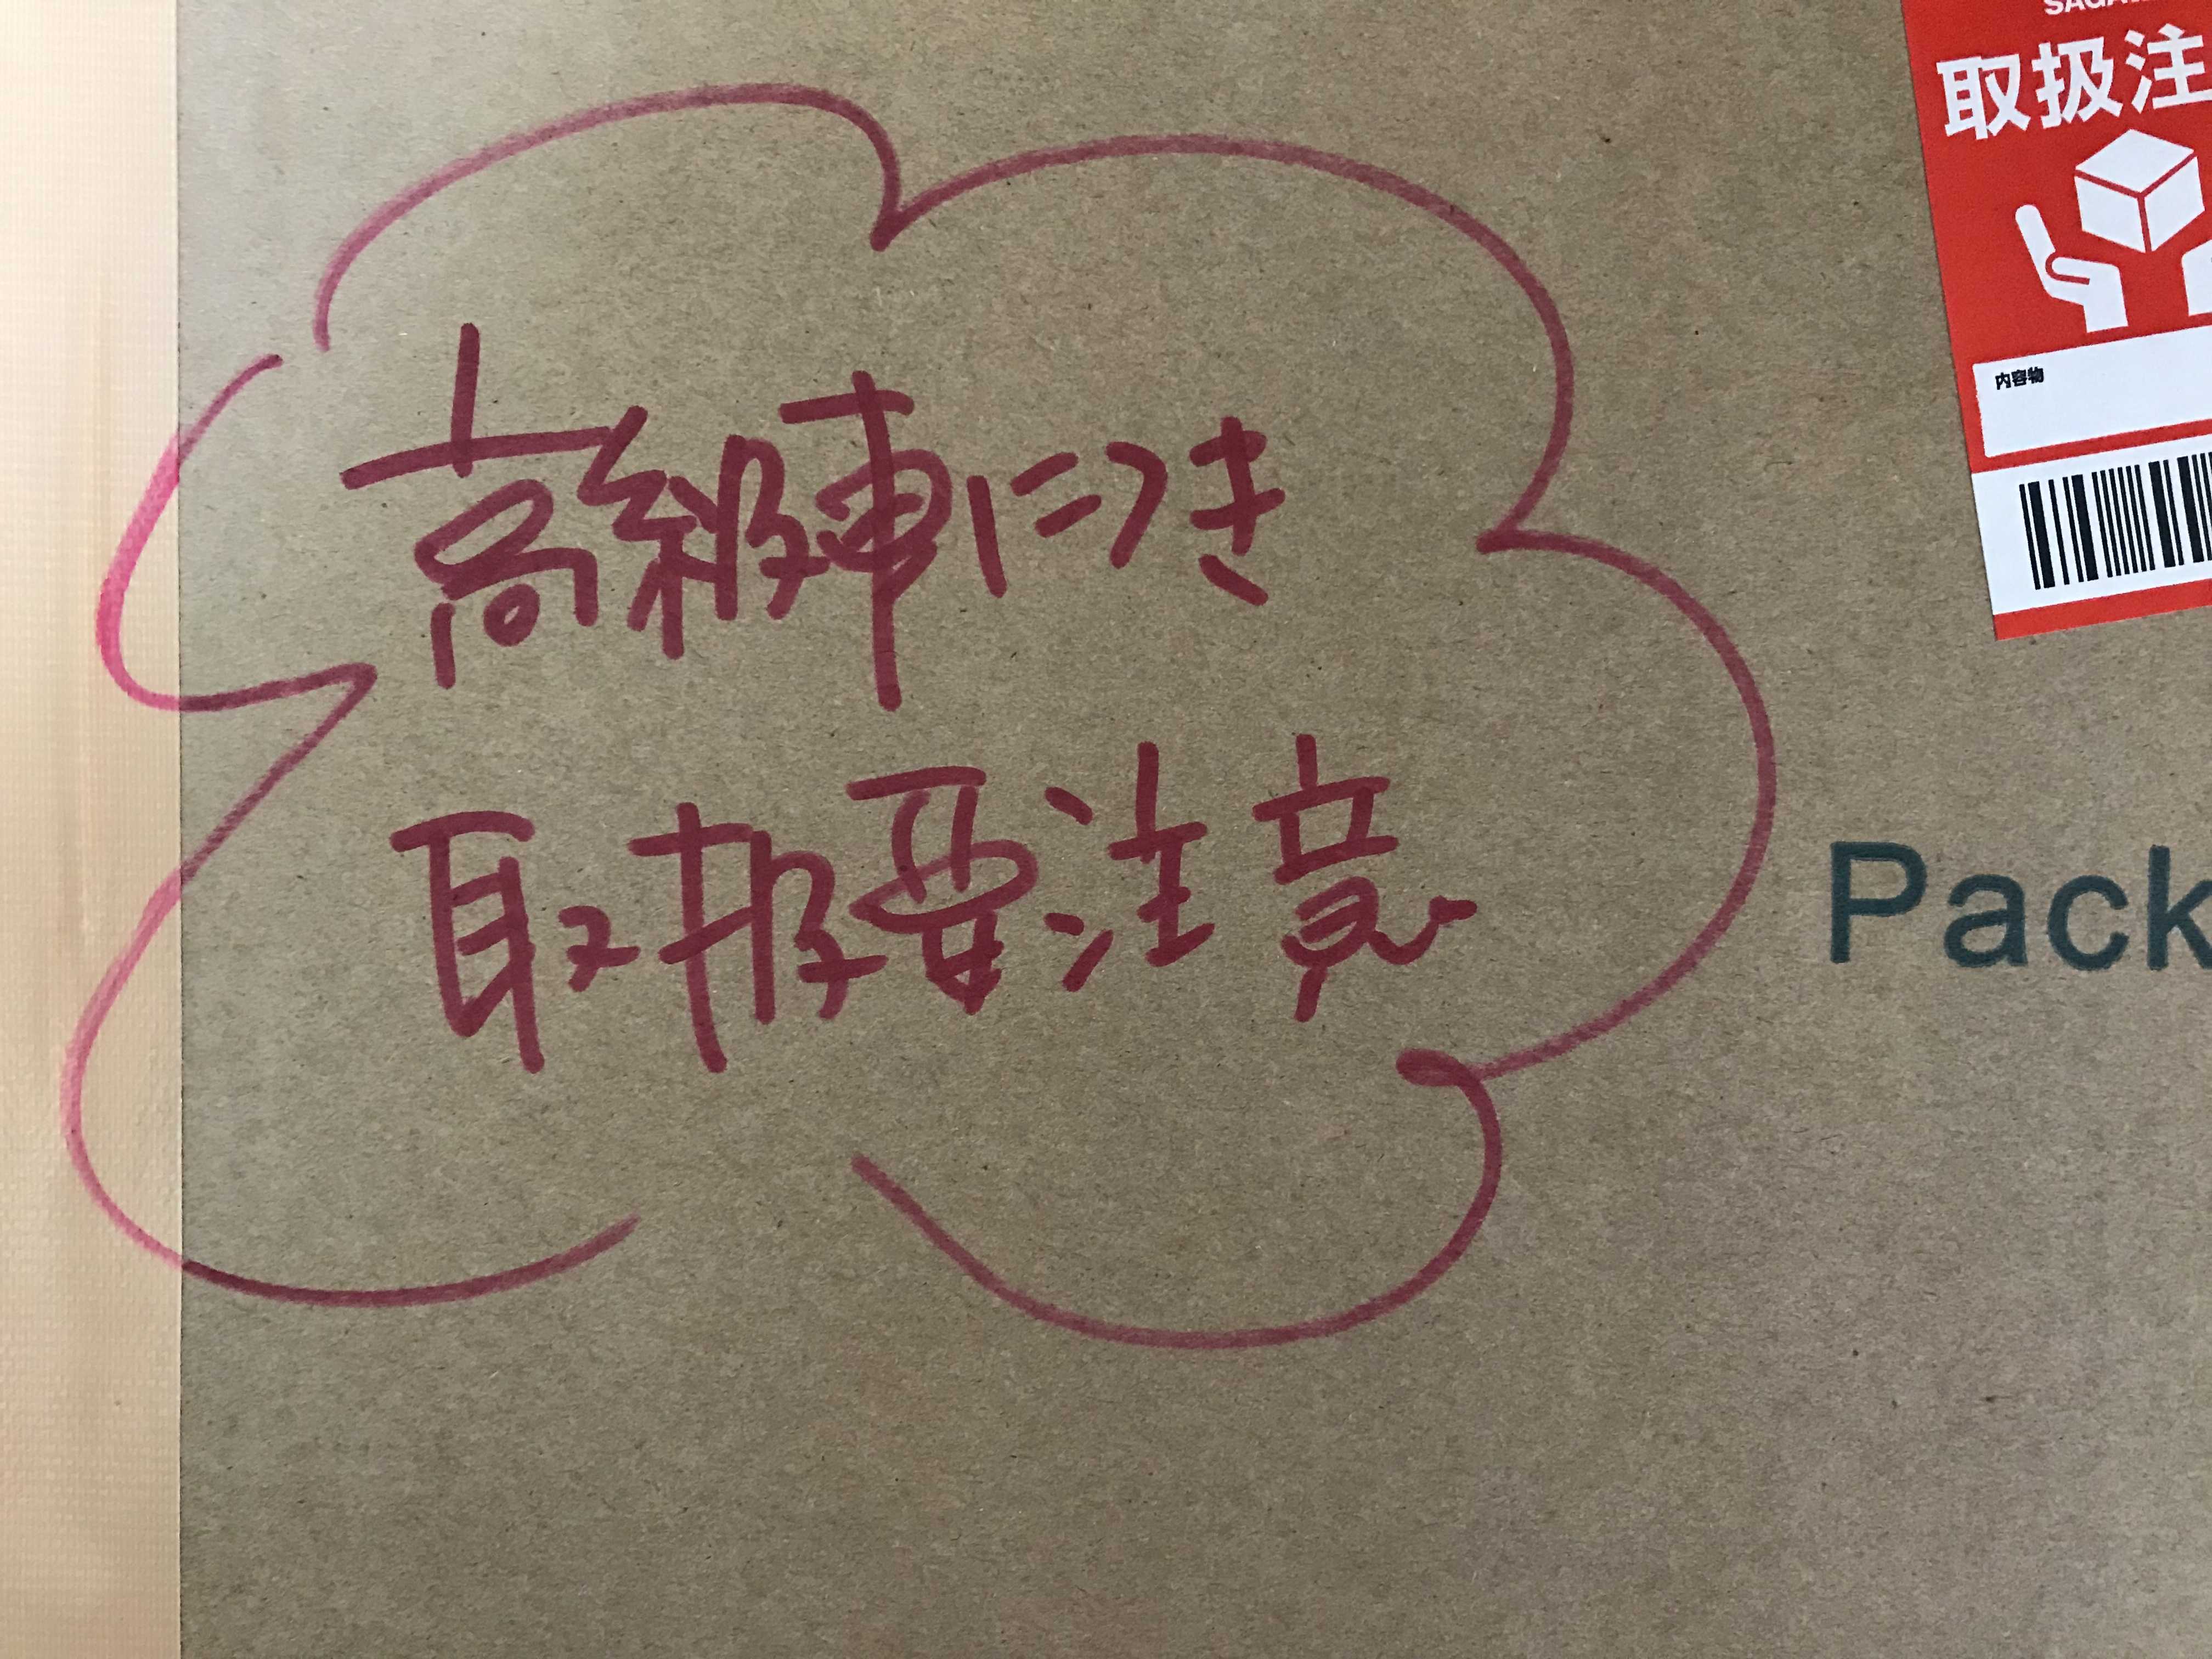 高級車につき
取扱要注意
取扱注
内容物
Pack